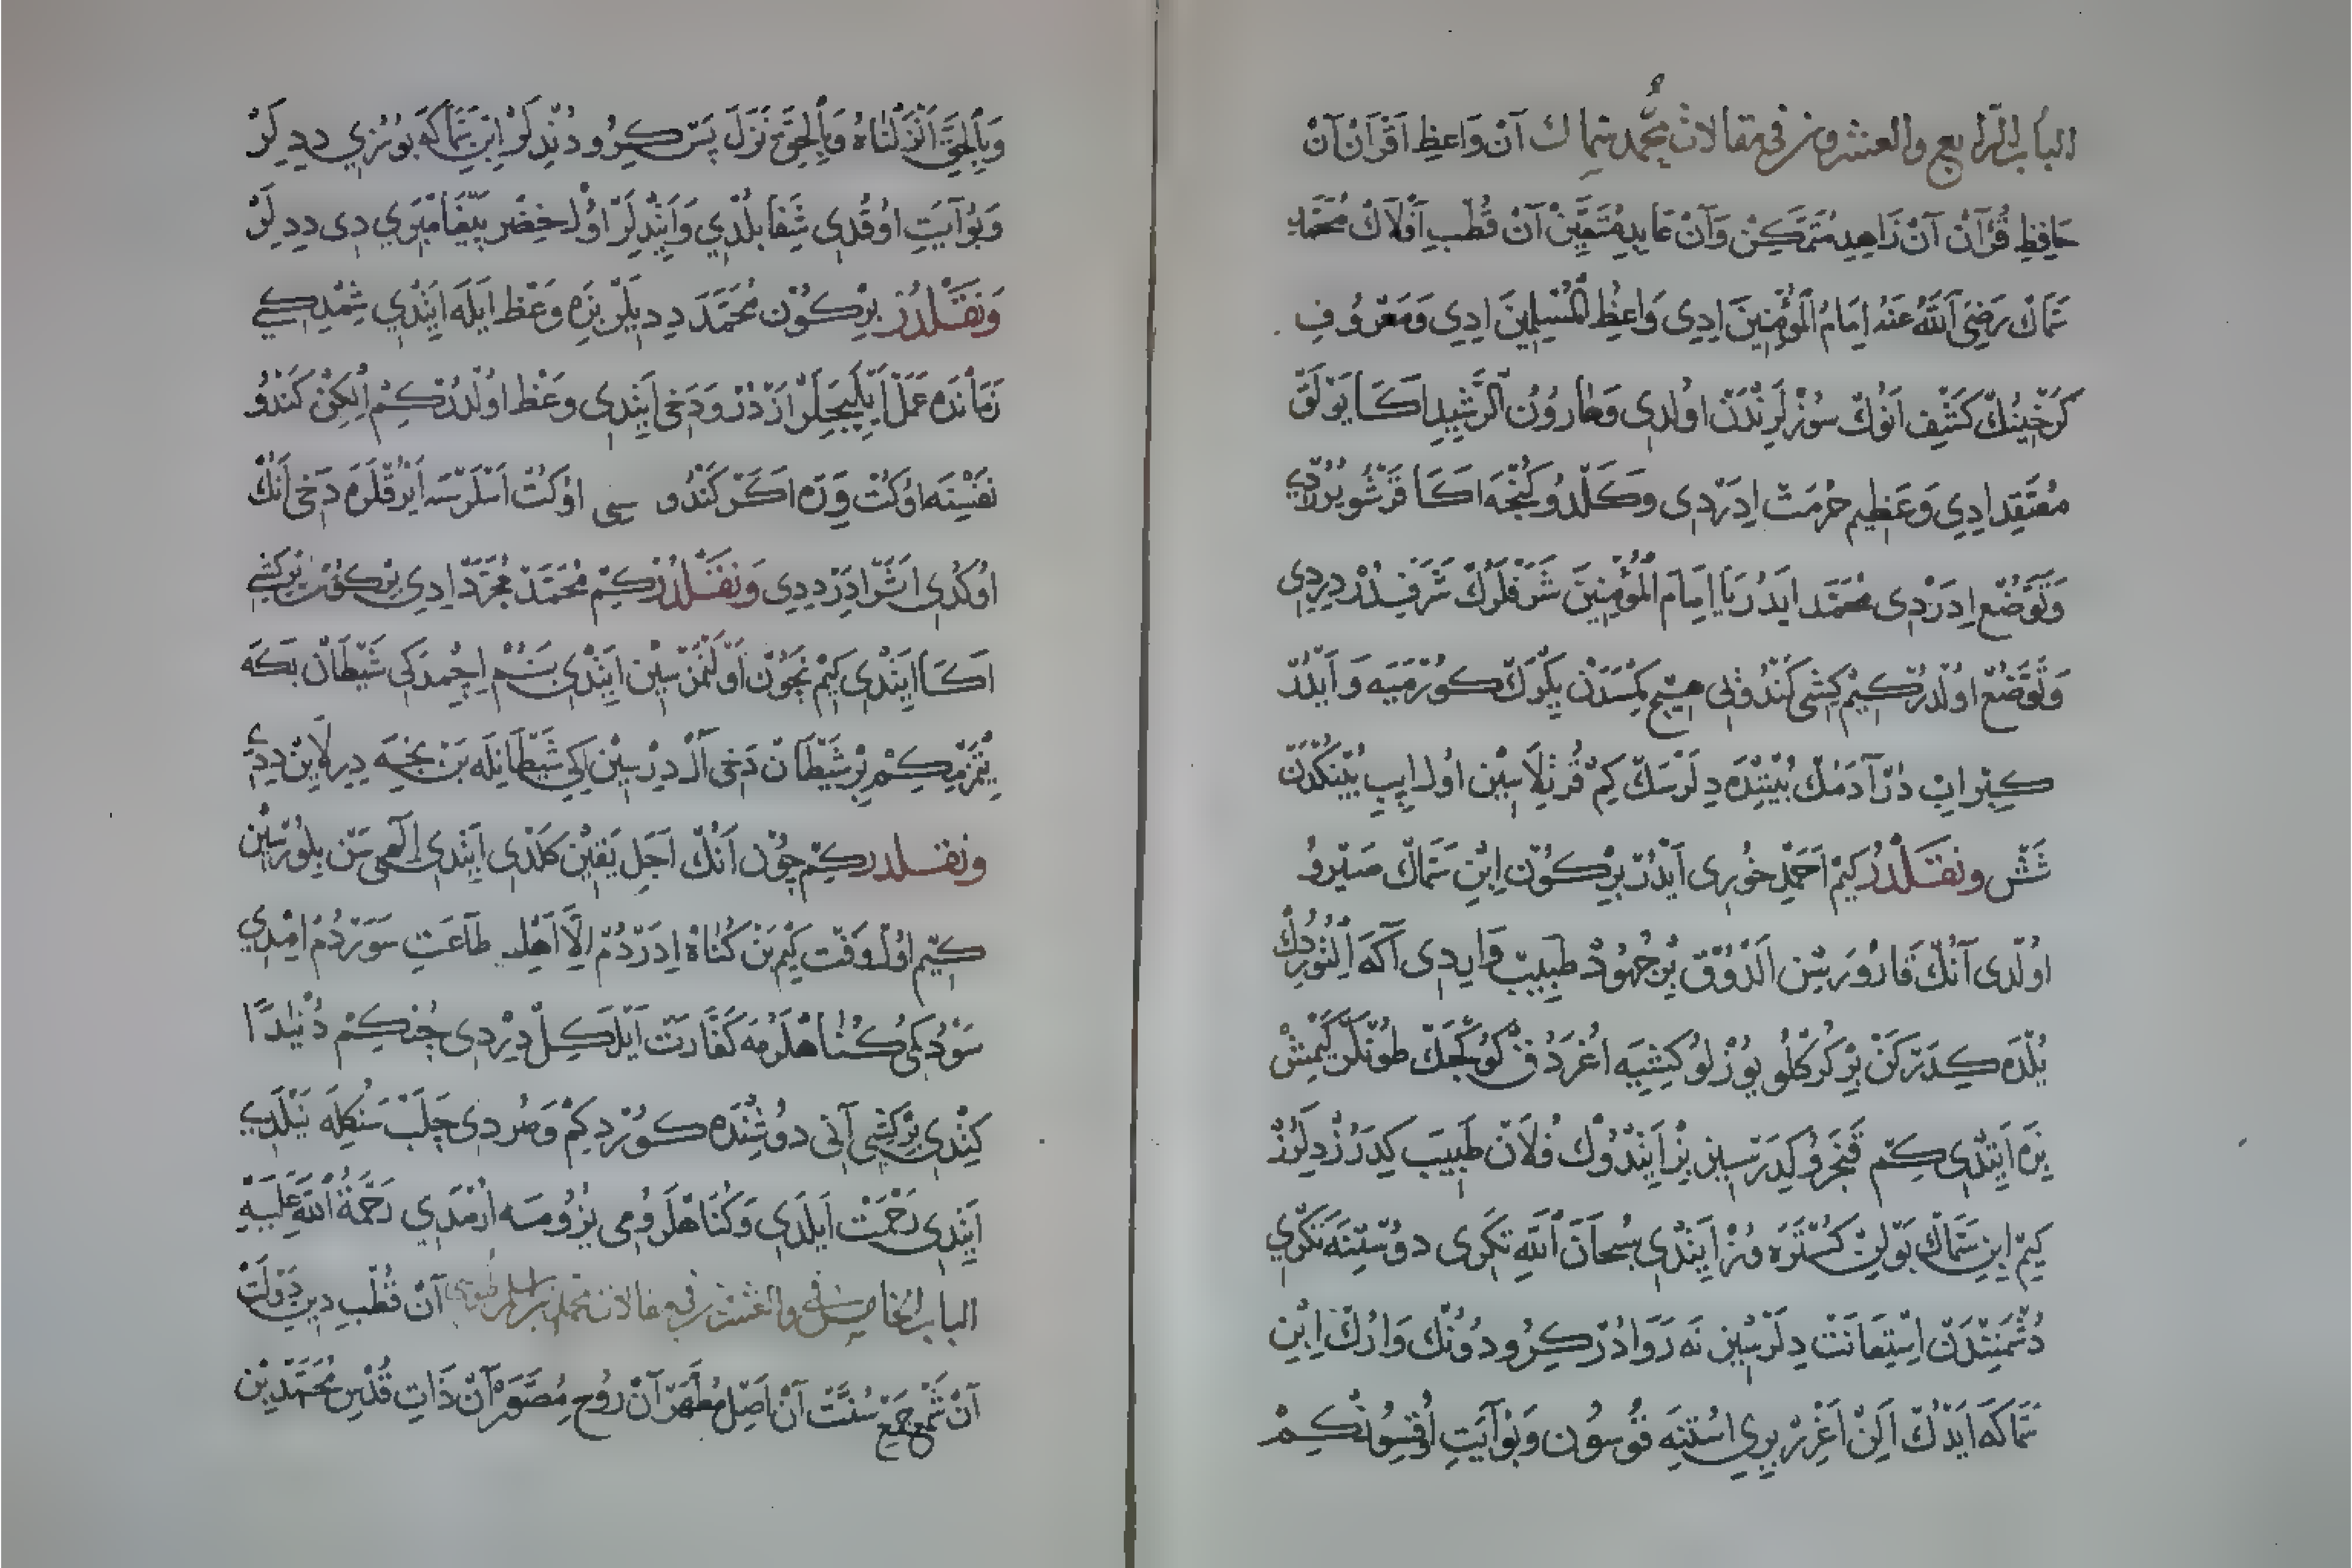 الباب الرابع والعشرون في مقالات محمد سماك آنْ وَاعِظِ اَقْرَانْ آنْ
حَافِظِ قُرْآنْ آنْ زَاهِدِ مُتَمَكِّنْ وَآنْ عَابِدِ مُتَعَيِّنْ آنْ قُطْبِ اَفْلَاكْ مُحَمَّدِ
سَمَّاكْ رَضِيَ اللّٰهُ عَنْهُ اِمَامُ الْمُؤْمِنِينَ اِدِى وَاعِظُ الْمُسْلِمِينَ اِدِى وَمَعْرُوفِ
كَرْخِينُكْ كَشْفِ اَنُوكْ سُوزْلَرِنْدَنْ اولدى وَهَارُونُ الرَّشِيدِ اَكَا بَوْلَقْ
مُعْتَقِدْ اِدِى وَعَظِيمِ حُرْمَتْ اِدَرْدِى وَكَلْدُوكِنْجَه اَكَا قَرْشُو يُرُرْدِى
وَتَوَضُّعْ اِدَرْدِى مُحَمَّد اَيَدُرْ يَا اِمَامَ الْمُؤْمِنِينَ شَرَفْلَرُكْ شَرَفِيدُرْ دِرْدِى
وَتَوَضُّعْ اولْدُرْ كِيمْ كِشِى كَنْدُوئِى هِيچْ كِمْسَدَنْ يِكْرَكْ كورْمَيَه وَاَيْدُرْ
كِبْرِ اِبْ دُرْ آدَمُكْ بُيْنِنْدَه دِلَرْسَكْ كِمْ قُرْتِلَاسِنْ اول اِيبِ بُيْنِكْدَنْ
شَشْ ونقلدُرْ كِيمْ اَحْمَدِ خُورِى اَيْدُرْ بِرْ كُونْ اِبْنِ سَمَّاكْ صَيْرُو
اولْدى آنُكْ قَارُورَسِنْ اَلْدُوقْ بِرْ جُهُودْ طَبِيبْ وَارِدِى آكَه اِلْتُورُرْدُكْ
يُلْدَه كِدَرْكَنْ بِرْ كُرْكْلُو يُوزْلُو كِشِيَه اُغْرَدُقْ كُوكْجَكْ طُونْلَرْ كَيْمِشْ
بِزَه اَيِتْدِى كِمْ قَنْجَرُو كِدَرْسِيزْ بِزْ اَيِتْدُوكْ فُلَانْ طَبِيبَه كِدَرُزْ دِلَرُزْ
كِيمْ اِبْنِ سَمَّاكْ بَوْلِنْ كُسْتَرَه وُزْ اَيِتْدِى سُبْحَانَ اللّٰه تَكْرِى دوسْتِنَه تَكْرِى
دُشْمَنِنْدَنْ اِسْتِعَانَتْ دِلَرْسِيزْ نَه رَوَادُرْ كِرُو دونُكْ وَارُكْ اِبْنِ
سَمَّاكَه اَيْدُكْ اَلِنْ اَغْرِرْ يِرِى اُسْتِنَه قُوسُونْ وَبُو آيَتِ اُوقُسُونْ كِمْ
وَبِالْحَقِّ اَنْزَلْنَاهُ وَبِالْحَقِّ نَزَلَ پَسْ كِرُو دُنْدِلَرْ اِبْنِ سَمَّاكَه بُو سُزِى دِدِلَرْ
وَبُو آيَتِ اوقُدِى شِفَا بُلْدِى وَاَيِتْدِلَرْ اوُلْ خِضْر پَيْغَامْبَرِى دِى دِدِلَرْ
وَنَقْلدُرْ بِرْ كُونْ مُحَمَّدَ دِدِيلَرْ بِزَه وَعْظ اَيْلَه اَيِتْدِي شِمْدِكِي
زَمَانْدَه عَمَلْ اَيْلَيِجِلَرْ اَزْدُرْ وَدَخِى اَيِتْدِى وَعْظ اولْدُرْ كِمْ اِلْكِنْ كَنْدُو
نَفْسِنَه اوكُتْ وِرَه اَكَرْ كَنْدُوسِى اوكُتْ اَسْلَرْسَه اَيْرُقْلَرَه دَخِى اَنُكْ
اوكُدى اَثَرْ اِدَرْ دِدِى وَنَقْلدُرْ كِمْ مُحَمَّدْ مُجَرَّدْ اِدِى بِرْ كُونْ بِرْ كِشِى
اَكَا اَيِتْدِى كِيمْ نِچُونْ اَوْلَنْمَزْسِنْ اَيِتْدِى بَنُمْ اِچُمْدَكِى شَيْطَانْ بَكَه
يِتْمَزْمِى كِمْ بِرْ شَيْطَانْ دَخِى اَلْ دِرْسِنْ اِكِي شَيْطَانِلَه بَنْ نِجَه دِرِلَايِنْ دِدِى
ونقلدر كِمْ چُونْ اَنُكْ اَجَلِ يَقِينْ كَلْدِى اَيِتْدِى اِلٰهِى سَنْ بِلُورْسِنْ
كِيمْ اوُلْ وَقْت كِيمْ بَنْ كُنَاهْ اِدَرْدُمْ اِلَّا اَهْلِ طَاعَتِ سَوَرْدُمْ اِمْدِي
سَوْدُكُمِى كُنَاهْلَرُمَه كَفَّارَتْ اَيْلَكِلْ دِيْرْدِى چُنْكِمْ دُنْيَادَنْ
كِتْدِى بِرْ كِشِى آنِى دوشُنْدَه كورْدِ كِمْ وَصُرْدِى چَلَبْ سَنُكِلَه نَيْلَدِي
اَيِتْدِى رَحْمَتْ اَيْلَدِى وَكُنَاهْلَرُومِى يُزُومَه اُرْمَدِي رَحْمَةُ اللّٰهِ عَلَيْهِ
الباب الخامس والعشرن في مقالات محمد بن اسلم طوسى آنْ قُطْبِ دِينِ دَوْلَتْ
آنْ شَمْعِ جَمْعِ سُنَّتْ آنْ اَصْلِ مُطَهَّرْ آنْ رُوحِ مُصَوَّرْ آنْ ذَاتِ قُدْسِ مُحَمَّدِ بْنِ